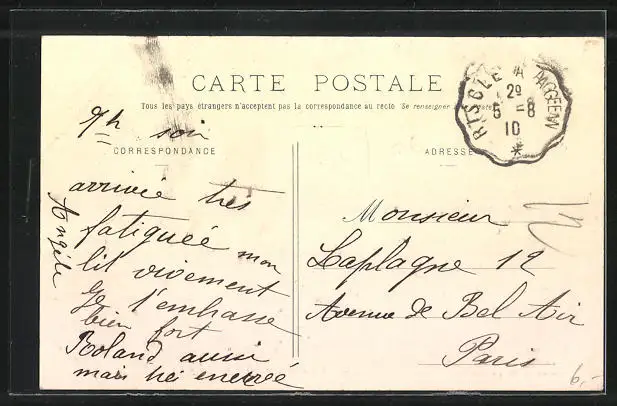 CARTE POSTALE
Tous les pays étrangers n'acceptent pas la correspondance au recto (Se renseigner
CORRESPONDANCE
ADRESSE
9h soir
arrivée très
fatiguée mon
lit vivement
je t'embrasse
bien fort
Roland aussi
mais
Angèle
RISCLE A
2º
5 -8
10
*
Monsieur
Laplagne 12
Avenue de Bel Air
Paris
6,-